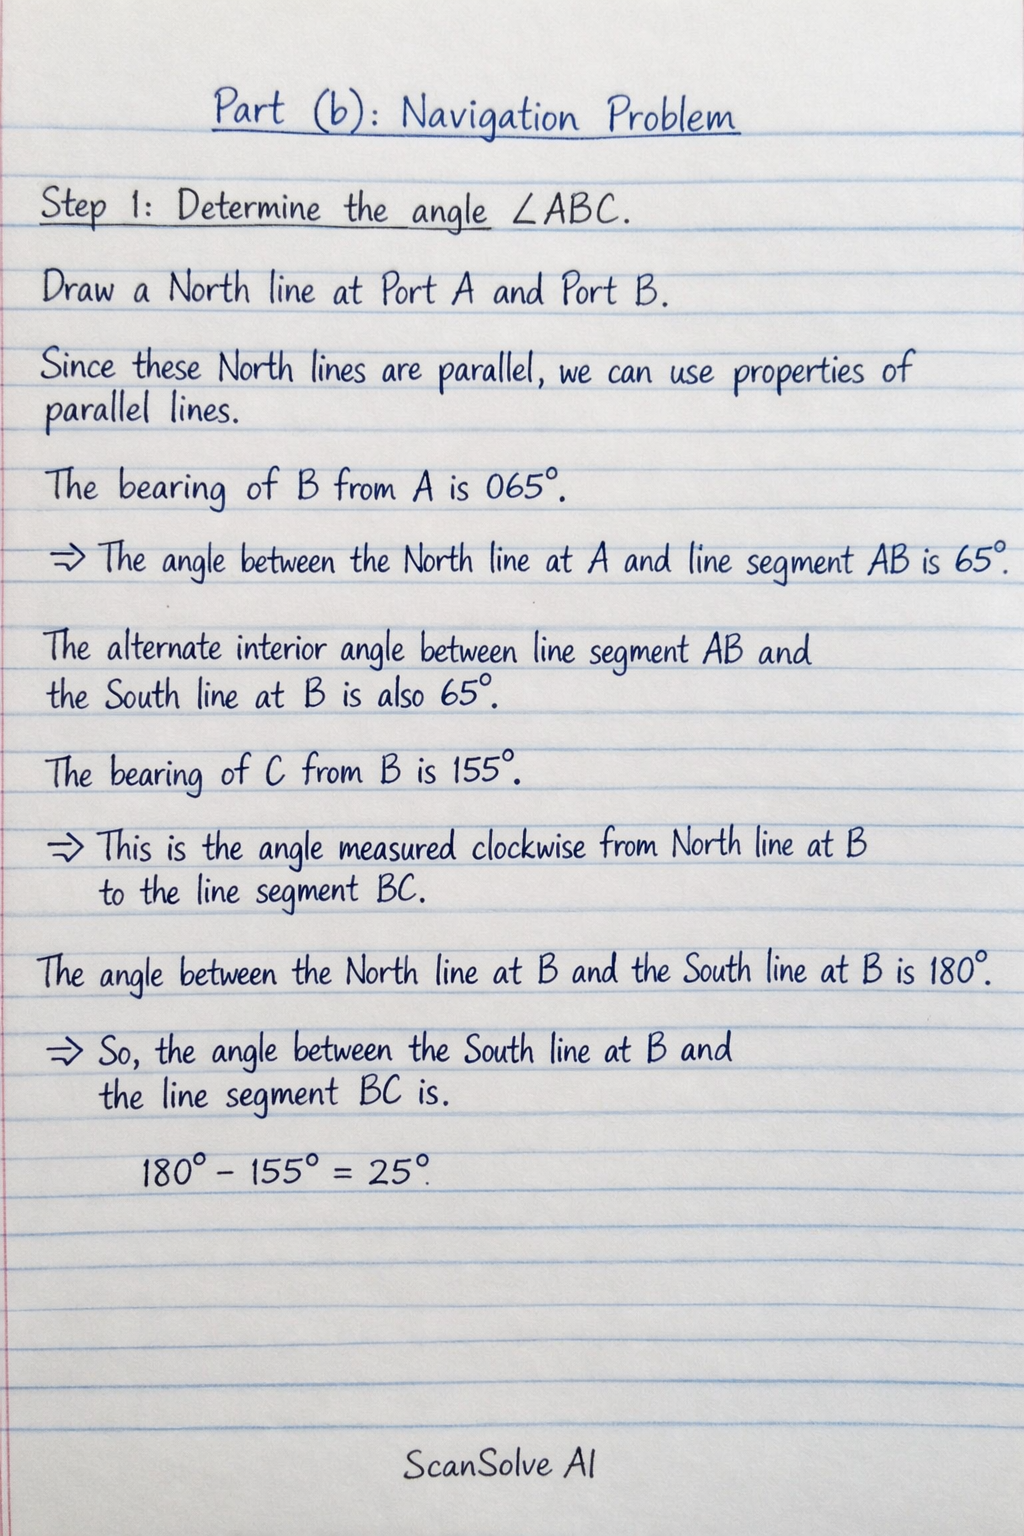 Part (b): Navigation Problem
Step 1: Determine the angle ∠ABC.
Draw a North line at Port A and Port B.
Since these North lines are parallel, we can use properties of
parallel lines.
The bearing of B from A is 065°.
⇒ The angle between the North line at A and line segment AB is 65°.
The alternate interior angle between line segment AB and
the South line at B is also 65°.
The bearing of C from B is 155°.
⇒ This is the angle measured clockwise from North line at B
to the line segment BC.
The angle between the North line at B and the South line at B is 180°.
⇒ So, the angle between the South line at B and
the line segment BC is.
180° – 155° = 25°.
ScanSolve AI